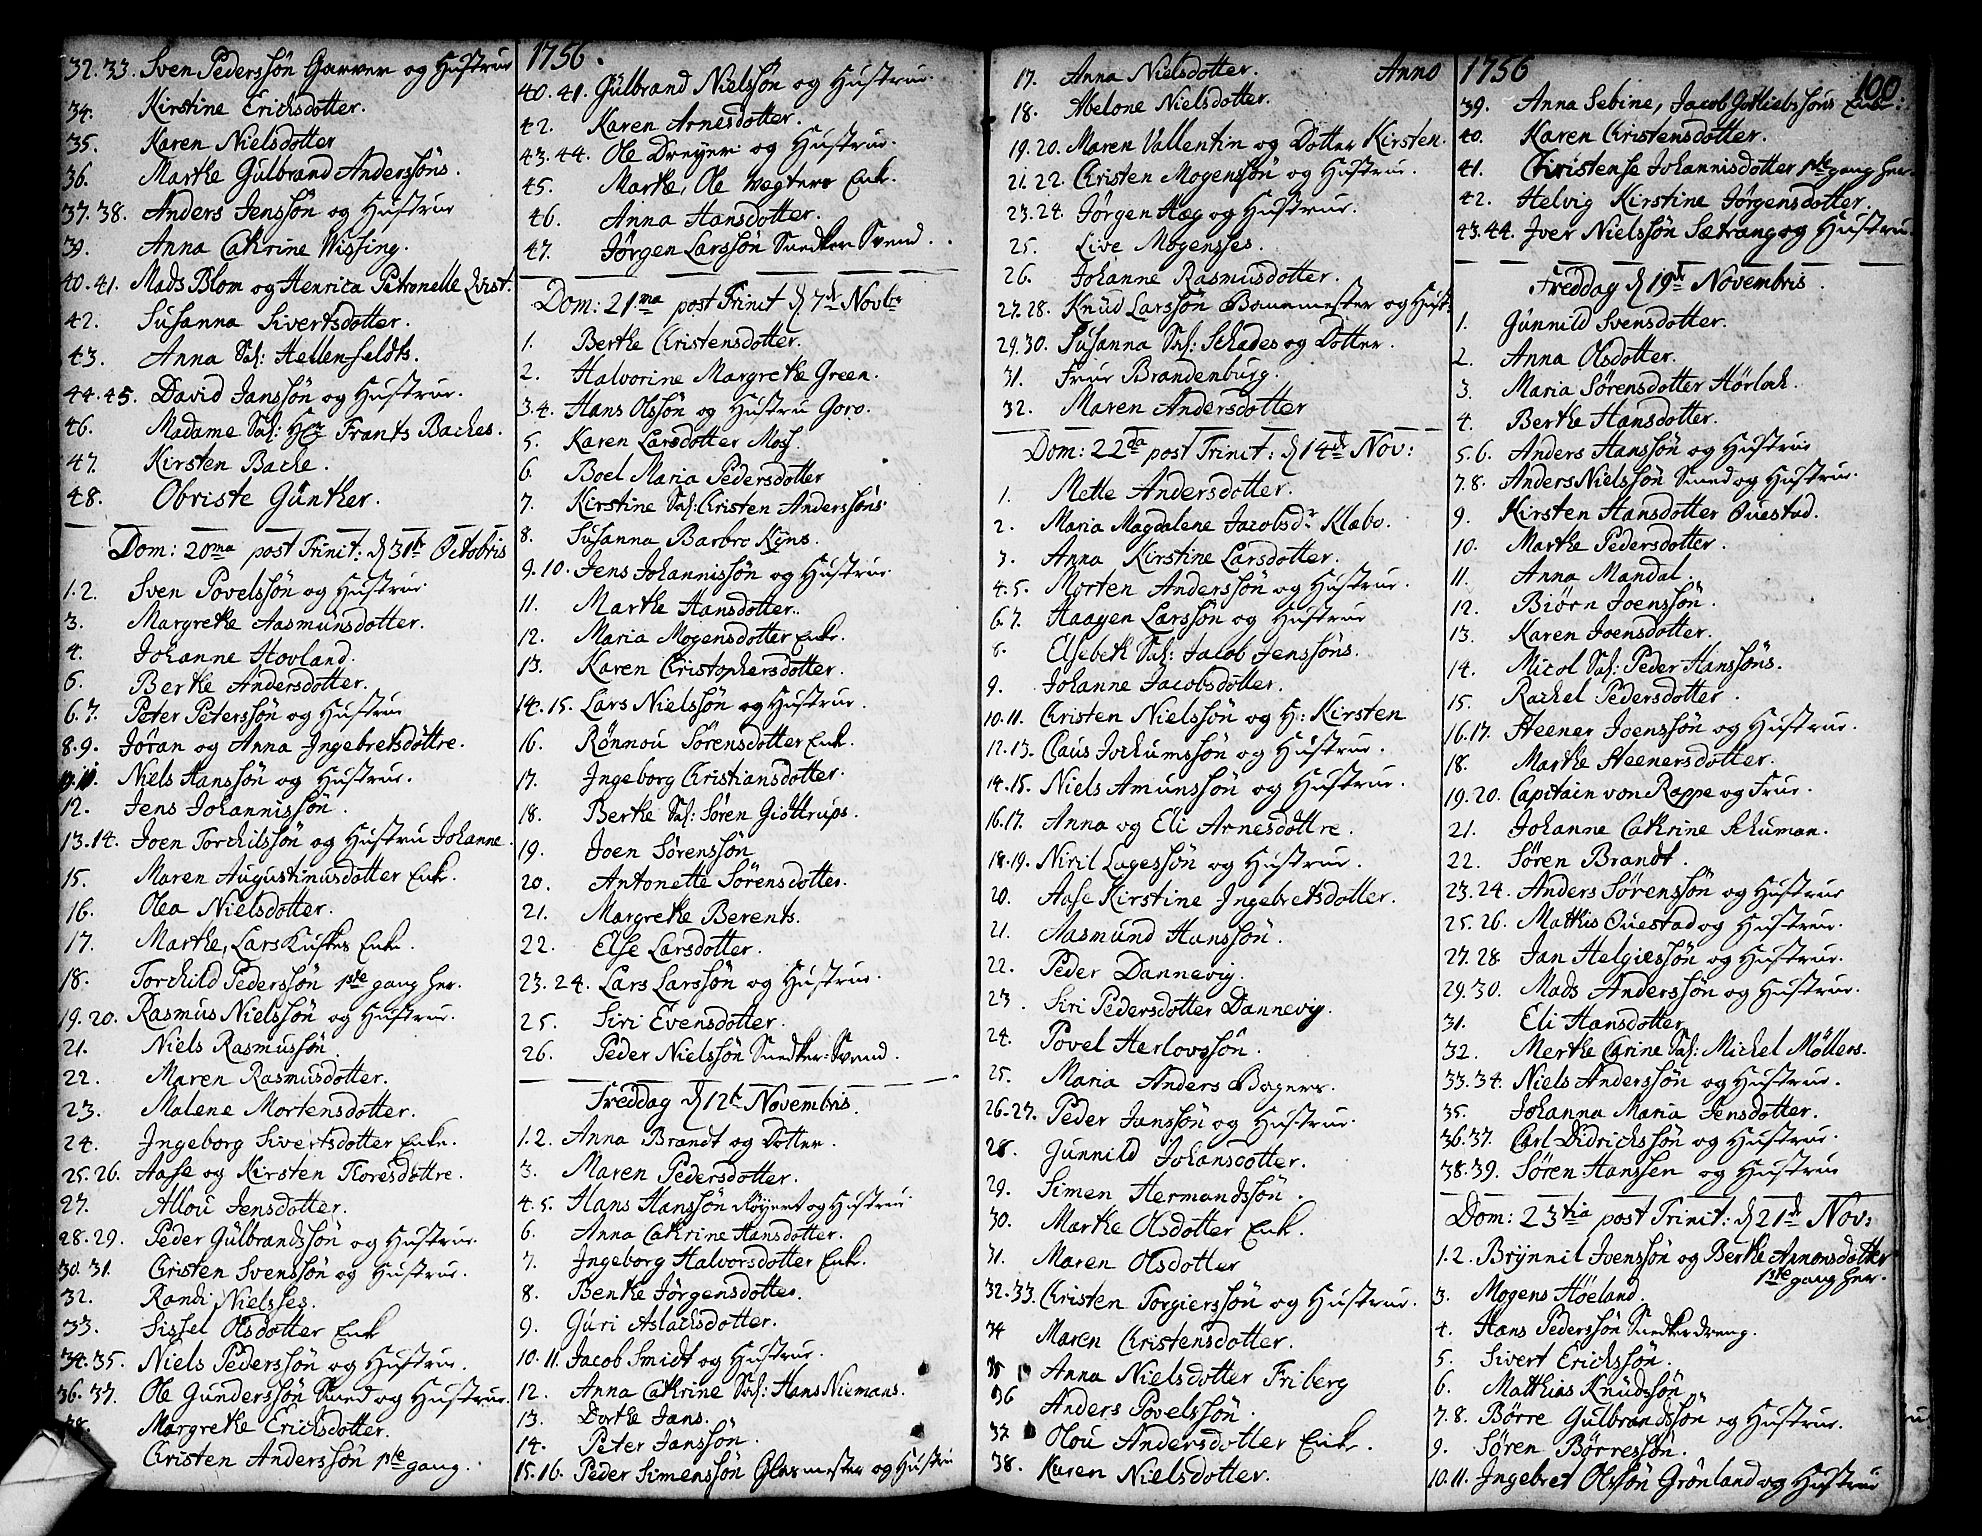 1756.
32.33. Sven Pederssön Garver og Hustrue
34. Kirstine Erichsdotter.
35. Karen Nielsdotter
36. Marthe Gulbrand Anderssöns.
37.38. Anders Jenssön og Hustrue
39. Anna Cathrine Wissing.
40.41. Mads Blom og Henrica Petronelle Qvist.
42. Susanna Sivertsdotter.
43. Anna Sal: Hellenfeldts.
44.45. David Janssön og Hustrue.
46. Madame Sal: Hr Frants Baches.
47. Kirsten Bache.
48. Obriste Günther.
Dom: 20ma post Trinit: d 31te Octobris
1.2. Sven Povelssön og Hustrue
3. Margrethe Aasmunsdotter.
4. Johanne Hovland.
5. Berthe Andersdotter.
6.7. Peter Peterssön og Hustrue
8.9. Jöran og Anna Ingebretsdöttre.
10.11. Niels Hanssön og Hustrue.
12. Jens Johannissön.
13.14. Joen Torchilssön og Hustru Johanne.
15. Maren Augustinusdotter Enke.
16. Olea Nielsdotter.
17. Marthe, Lars Kuskes Enke.
18. Torchild Pederssön 1ste gang her.
19.20. Rasmus Nielssön og Hustrue.
21. Niels Rasmussön.
22. Maren Rasmusdotter.
23. Malene Mortensdotter.
24. Ingeborg Sivertsdotter Enke.
25.26. Aase og Kirsten Toresdöttre.
27. Allou Jensdotter.
28.29. Peder Gulbrandssön og Hustrue.
30.31. Christen Svenssön og Hustrue.
32. Randi Nielsses.
33. Sissel Olsdotter Enke
34.35. Niels Pederssön og Hustrue.
36.37. Ole Gunderssön Smed og Hustrue.
38. Margrethe Erichsdotter.
Christen Anderssön 1ste gang.
40.41. Gulbrand Nielssön og Hustrue.
42. Karen Arnesdotter.
43.44. Ole Dreyer og Hustrue.
45. Marthe, Ole Wegters Enke.
46. Anna Hansdotter.
47. Jörgen Larssön Snedker Svend.
Dom: 21ma post Trinit d 7de Novbr
1. Berthe Christensdotter.
2. Halvorine Margrethe Green.
3.4. Hans Olssön og Hustru Goro.
5. Karen Larsdotter Mos.
6. Boel Maria Pedersdotter
7. Kirstine Sal: Christen Anderssöns
8. Susanna Barbro Kyns.
9.10. Jens Johannissön og Hustrue
11. Marthe Hansdotter.
12. Maria Mogensdotter Enke.
13. Karen Christophersdotter.
14.15. Lars Nielssön og Hustrue.
16. Rönnou Sörensdotter Enke.
17. Ingeborg Christiansdotter.
18. Berthe Sal: Sören Gisttrups.
19. Joen Sörenssön
20. Antonette Sörensdotter.
21. Margrethe Berents.
22. Else Larsdotter.
23.24. Lars Larssön og Hustrue.
25. Siri Evensdotter.
26. Peder Nielssön Snedker-Svend.
Freddag d 12te Novembris.
1.2. Anna Brandt og Dotter.
3. Maren Pedersdotter.
4.5. Hans Hanssön Röyert og Hustrue
6. Anna Cathrine Hansdotter.
7. Ingeborg Halvorsdotter Enke.
8. Benthe Jörgensdotter.
9. Guri Aslachsdotter.
10.11. Jacob Smidt og Hustrue.
12. Anna Cathrine Sal: Hans Niemans.
13. Dorthe Jans.
14. Peter Janssön.
15.16. Peder Simenssön Glasmester og Hustru
Anno 1756
100
17. Anna Nielsdotter.
18. Abelone Nielsdotter.
19.20. Maren Vallentin og Dotter Kirsten.
21.22. Christen Mogenssön og Hustrue.
23.24. Jörgen Hæg og Hustrue.
25. Live Mogensses.
26. Johanne Rasmusdotter.
27.28. Knud Larssön Bommester og Hust:
29.30. Susanna Sal: Schades og Dotter.
31. Frue Brandenburg.
32. Maren Andersdotter
Dom: 22da post Trinit: d 14de Nov:
1. Mette Andersdotter.
2. Maria Magdalene Jacobsdr Klæbo.
3. Anna Kirstine Larsdotter.
4.5. Morten Anderssön og Hustrue.
6.7. Haagen Larssön og Hustrue
8. Elsebeth Sal: Jacob Jenssöns.
9. Johanne Jacobsdotter.
10.11. Christen Nielssön og H: Kirsten
12.13. Claus Jochumssön og Hustrue.
14.15. Niels Amunssön og Hustrue.
16.17. Anna og Eli Arnesdöttre.
18.19. Niril Lagessön og Hustrue.
20. Aase Kirstine Ingebretsdotter.
21. Aasmund Hanssön.
22. Peder Dannevig.
23. Siri Pedersdotter Dannevig.
24. Povel Herlovssön.
25. Maria Anders Bagers.
26.27. Peder Janssön og Hustrue.
28. Gunnild Johansdotter.
29. Simen Hermandssön.
30. Marthe Olsdotter Enke.
31. Maren Olsdotter
32.33. Christen Torgierssön og Hustrue.
34 Maren Christensdotter.
35 Anna Nielsdotter Friberg
36 Anders Povelssön.
37 Olou Andersdotter Enke.
38. Karen Nielsdotter.
39. Anna Sebine, Jacob Gotliebssöns Enke:
40. Karen Christensdotter.
41. Christense Johannisdotter 1ste gang her.
42. Helvig Kirstine Jörgensdotter.
43.44. Iver Nielssön Sætrang og Hustru.
Freddag d 19de Novembris.
1. Gunnild Svensdotter.
2. Anna Olsdotter.
3. Maria Sörensdotter Hörloch.
4. Berthe Hansdotter.
5.6. Anders Hanssön og Hustrue
7.8. Anders Nielssön Smed og Hustrue.
9. Kirsten Hansdotter Questad.
10. Marthe Pedersdotter.
11. Anna Mandal.
12. Biörn Joenssön.
13. Karen Joensdotter.
14. Micol Sal: Peder Hanssöns.
15. Rachel Pedersdotter.
16.17. Steener Joenssön og Hustrue.
18. Marthe Steenersdotter.
19.20. Capitain von Rappe og Frue.
21. Johanne Cathrine Schuman.
22. Sören Brandt.
23.24. Anders Sörenssön og Hustrue
25.26. Mathis Questad og Hustrue.
27.28 Jan Helgiessön og Hustrue.
29.30. Mads Anderssön og Hustrue.
31. Eli Hansdotter
32. Merthe Carine Sal: Michel Möllers.
33.34. Niels Anderssön og Hustrue.
35. Johanna Maria Jensdotter.
36.37. Carl Didrichssön og Hustrue.
38.39. Sören Hanssen og Hustrue
Dom: 23tia post Trinit: d 21de Nov:
1.2. Brynnil Joenssön og Berthe Amonsdotter
1ste gang her.
3. Mogens Höeland.
4. Hans Pederssön Snedkerdreng.
5. Sivert Erichssön.
6. Matthias Knudssön
7.8. Börre Gulbrandssön og Hustrue.
9. Sören Börressön.
10.11. Ingebret Olssön Grönland og Hustrue